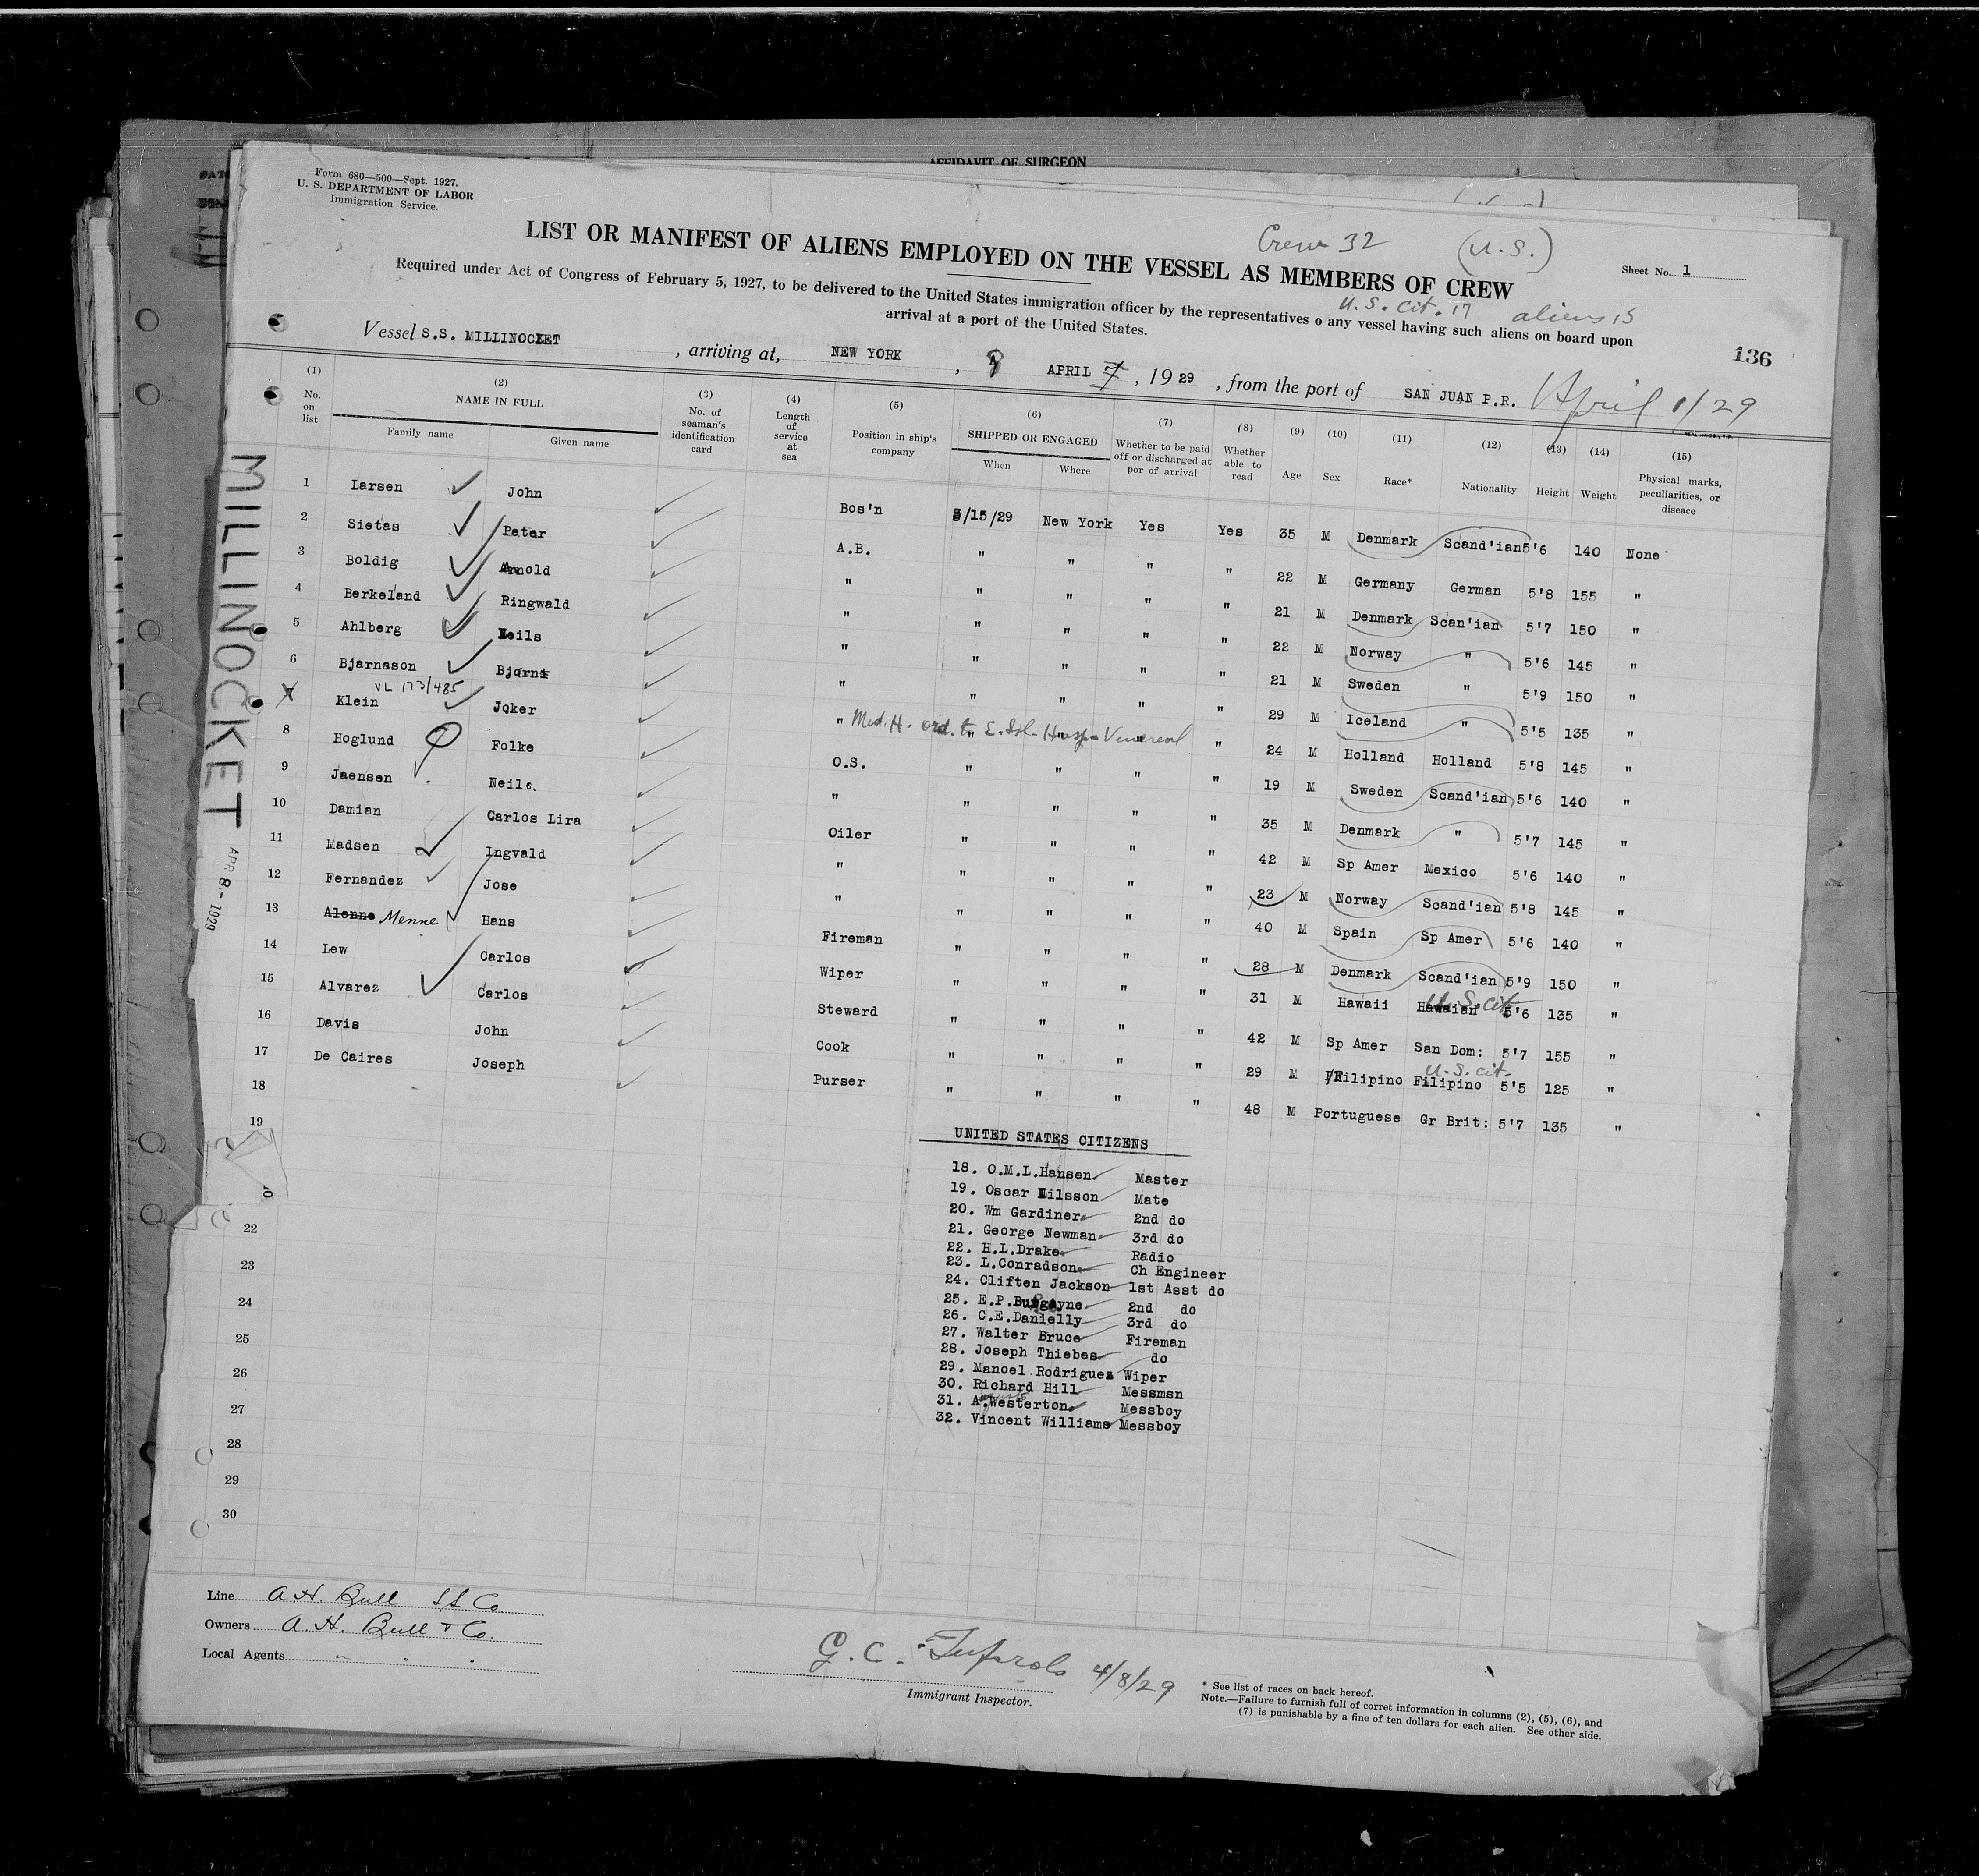 AFFIDAVIT OF SURGEON
Form 680—500—Sept. 1927.
U. S. DEPARTMENT OF LABOR
Immigration Service.
Crew 32 (U.S.)
LIST OR MANIFEST OF ALIENS EMPLOYED ON THE VESSEL AS MEMBERS OF CREW
Sheet No. 1
Required under Act of Congress of February 5, 1927, to be delivered to the United States immigration officer by the representatives o any vessel having such aliens on board upon
U.S. Cit. 17 aliens 15
arrival at a port of the United States.
136
Vessel S.S. MILLINOCKET , arriving at, NEW YORK , 8 APRIL 7 , 1929 , from the port of SAN JUAN P.R. April 1/29
(1) No. on list
(2) NAME IN FULL Family name Given name
(3) No. of seaman's identification card
(4) Length of service at sea
(5) Position in ship's company
(6) SHIPPED OR ENGAGED When Where
(7) Whether to be paid off or discharged at por of arrival
(8) Whether able to read
(9) Age
(10) Sex
(11) Race*
(12) Nationality
(13) Height
(14) Weight
(15) Physical marks, peculiarities, or diseace
1 Larsen John Bos'n 3/15/29 New York Yes Yes 35 M Denmark Scand'ian 5'6 140 None
2 Sietas Peter A.B. " " " " 22 M Germany German 5'8 155 "
3 Boldig Arnold " " " " " 21 M Denmark Scan'ian 5'7 150 "
4 Berkeland Ringwald " " " " " 22 M Norway " 5'6 145 "
5 Ahlberg Neils " " " " " 21 M Sweden " 5'9 150 "
6 Bjarnason Bjorni " " " " " 29 M Iceland " 5'5 135 "
VL 173/485
7 Klein Joker " Med. H. ord. to E. Isl. Hosp - Venereal " " " " 24 M Holland Holland 5'8 145 "
8 Hoglund Folke O.S. " " " " 19 M Sweden Scand'ian 5'6 140 "
9 Jaensen Neils " " " " " 35 M Denmark " 5'7 145 "
10 Damian Carlos Lira Oiler " " " " 42 M Sp Amer Mexico 5'6 140 "
11 Madsen Ingvald " " " " " 23 M Norway Scand'ian 5'8 145 "
12 Fernandez Jose " " " " " 40 M Spain Sp Amer 5'6 140 "
13 Alenne Menne Hans Fireman " " " " 28 M Denmark Scand'ian 5'9 150 "
14 Lew Carlos Wiper " " " " 31 M Hawaii Hawaian U.S. Cit 5'6 135 "
15 Alvarez Carlos Steward " " " " 42 M Sp Amer San Dom: 5'7 155 "
16 Davis John Cook " " " " 29 M Filipino Filipino U.S. cit. 5'5 125 "
17 De Caires Joseph Purser " " " " 48 M Portuguese Gr Brit: 5'7 135 "
18
19
UNITED STATES CITIZENS
18. O.M.L.Hansen Master
19. Oscar Nilsson Mate
20. Wm Gardiner 2nd do
21. George Newman 3rd do
22. H.L.Drake Radio
23. L.Conradson Ch Engineer
24. Cliften Jackson 1st Asst do
25. E.P.Burgoyne 2nd do
26. C.E.Danielly 3rd do
27. Walter Bruce Fireman
28. Joseph Thiebes do
29. Manoel Rodriguez Wiper
30. Richard Hill Messmsn
31. A.Westerton Messboy
32. Vincent Williams Messboy
22
23
24
25
26
27
28
29
30
MILLINOCKET APR 8 - 1929
Line A.H. Bull SS Co
Owners A.H. Bull & Co.
Local Agents " " "
G. C. 4/8/29
Immigrant Inspector.
* See list of races on back hereof.
Note.—Failure to furnish full of corret information in columns (2), (5), (6), and
(7) is punishable by a fine of ten dollars for each alien. See other side.